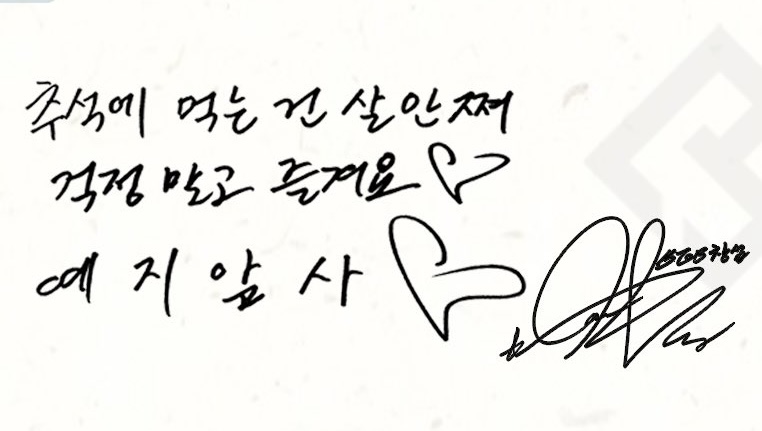 추석에 먹는 건 살 안 쪄
걱정 말고 즐겨요
예지앞사